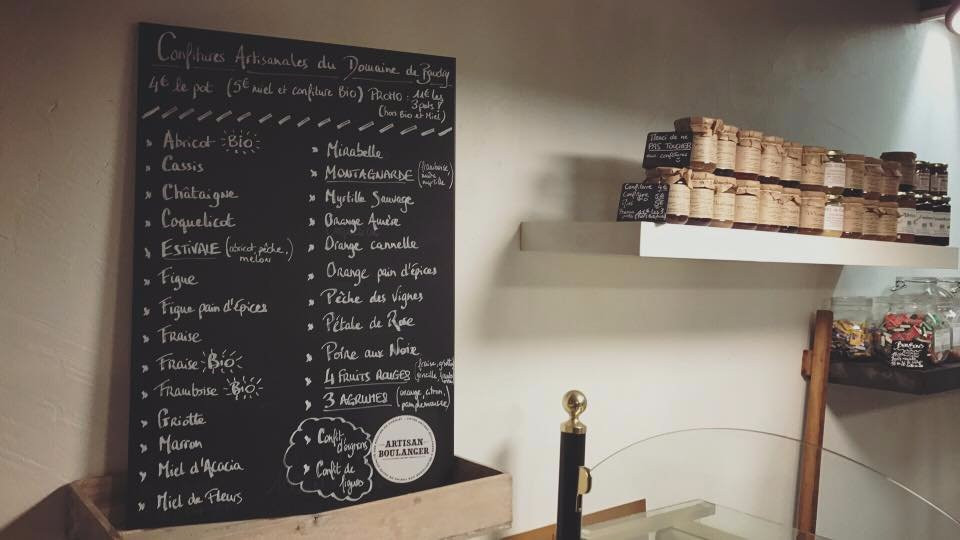 Confitures Artisanales du Domaine de
4€ le pot (5€ miel et confiture Bio) PROMO : 11€ les
3 pots !
(hors Bio et Miel)
Abricot Bio
Cassis
Châtaigne
Coquelicot
ESTIVALE (abricot, pêche,
melon)
Figue
Figue pain d'épices
Fraise
Fraise Bio
Framboise Bio
Griotte
Marron
Miel d'Acacia
Miel de Fleurs
Mirabelle
MONTAGNARDE (framboise,
mûre
myrtille)
Myrtille Sauvage
Orange Amère
Orange cannelle
Orange pain d'épices
Pêche des vignes
Pétale de Rose
Poire aux Noix
4 FRUITS ROUGES (fraise,
3 AGRUMES (orange, citron,
pamplemousse)
Confit
d'oignons
Confit de
figues
ARTISAN
BOULANGER
Merci de ne
PAS TOUCHER
aux confitures
Confiture 4€
Confiture
Bonbons